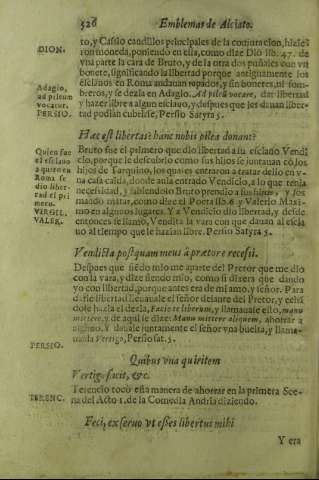 526 Emblemas de Alciato.
to, y Cassio caudillos principales de la conjuracion, hizie
DION.
ron moneda, poniendo en ella, como dize Dio lib. 47. da
vna parte la cara de Bruto, y de la otra dos puñales con vn
bonete, significando la libertad porque antiguamente los
esclauos en Roma andauan rapados, y sin bonetes, ni som-
Adagio,
breros, y se dezia en Adagio. Ad pileũ vocare, dar libertad
ad pileum
y hazer libre a algun esclauo, y despues que les dauan liber-
vocatur.
tad podian cubrirse, Persio Satyra 5.
PERSIO.
Hæc est libertas? hanc nobis pilea donant?
Quien fue
Bruto fue el primero que dio libertad a su esclauo Vendi
el esclauo
cio, porque le descubrio como sus hijos se juntauan cõ los
a quien en
hijos de Tarquino, los quales entraron a tratar dello en v-
Roma se
na casa caida, donde auia entrado Vendicio, a lo que tenia
dio liber-
necesidad, y sabiendolo Bruto prendio a sus hijos y los
tad el pri
mando matar, como dize el Poeta lib. 6 y Valerio Maxi-
mero.
mo en algunos lugares. Y a Vendicio dio libertad, y desde
VIRGIL.
entonces se llamo, Vendicta la vara con que dauan al escla
VALER.
uo al tiempo que le hazian libre. Persio Satyra 5.
Vendicta postquam meus à prætore recessi.
Despues que siẽdo mio me aparte del Pretor que me dio
con la vara, y dize siendo mio, como si dixera que dando
yo con libertad, porque antes era de mi amo, y señor. Para
darle libertad lleuauale el señor delante del Pretor, y echã
dole hazia el dezia, Facio te liberum, y llamauase ello, manu
mittere, y de aqui se dize: Manu mittere aliquem, ahorrar a
alguno. Y dauale juntamente el señor vna buelta, y llama-
uanla Vertigo, Persio sat. 5.
PERSIO.
Quibus vna quiritem
Vertigo facit, &c.
Terencio tocò esta manera de ahorrar en la primera Sce-
TERENC.
na del Acto 1. de la Comedia Andria diziendo.
Feci, ex seruo vt esses libertus mihi
Y era